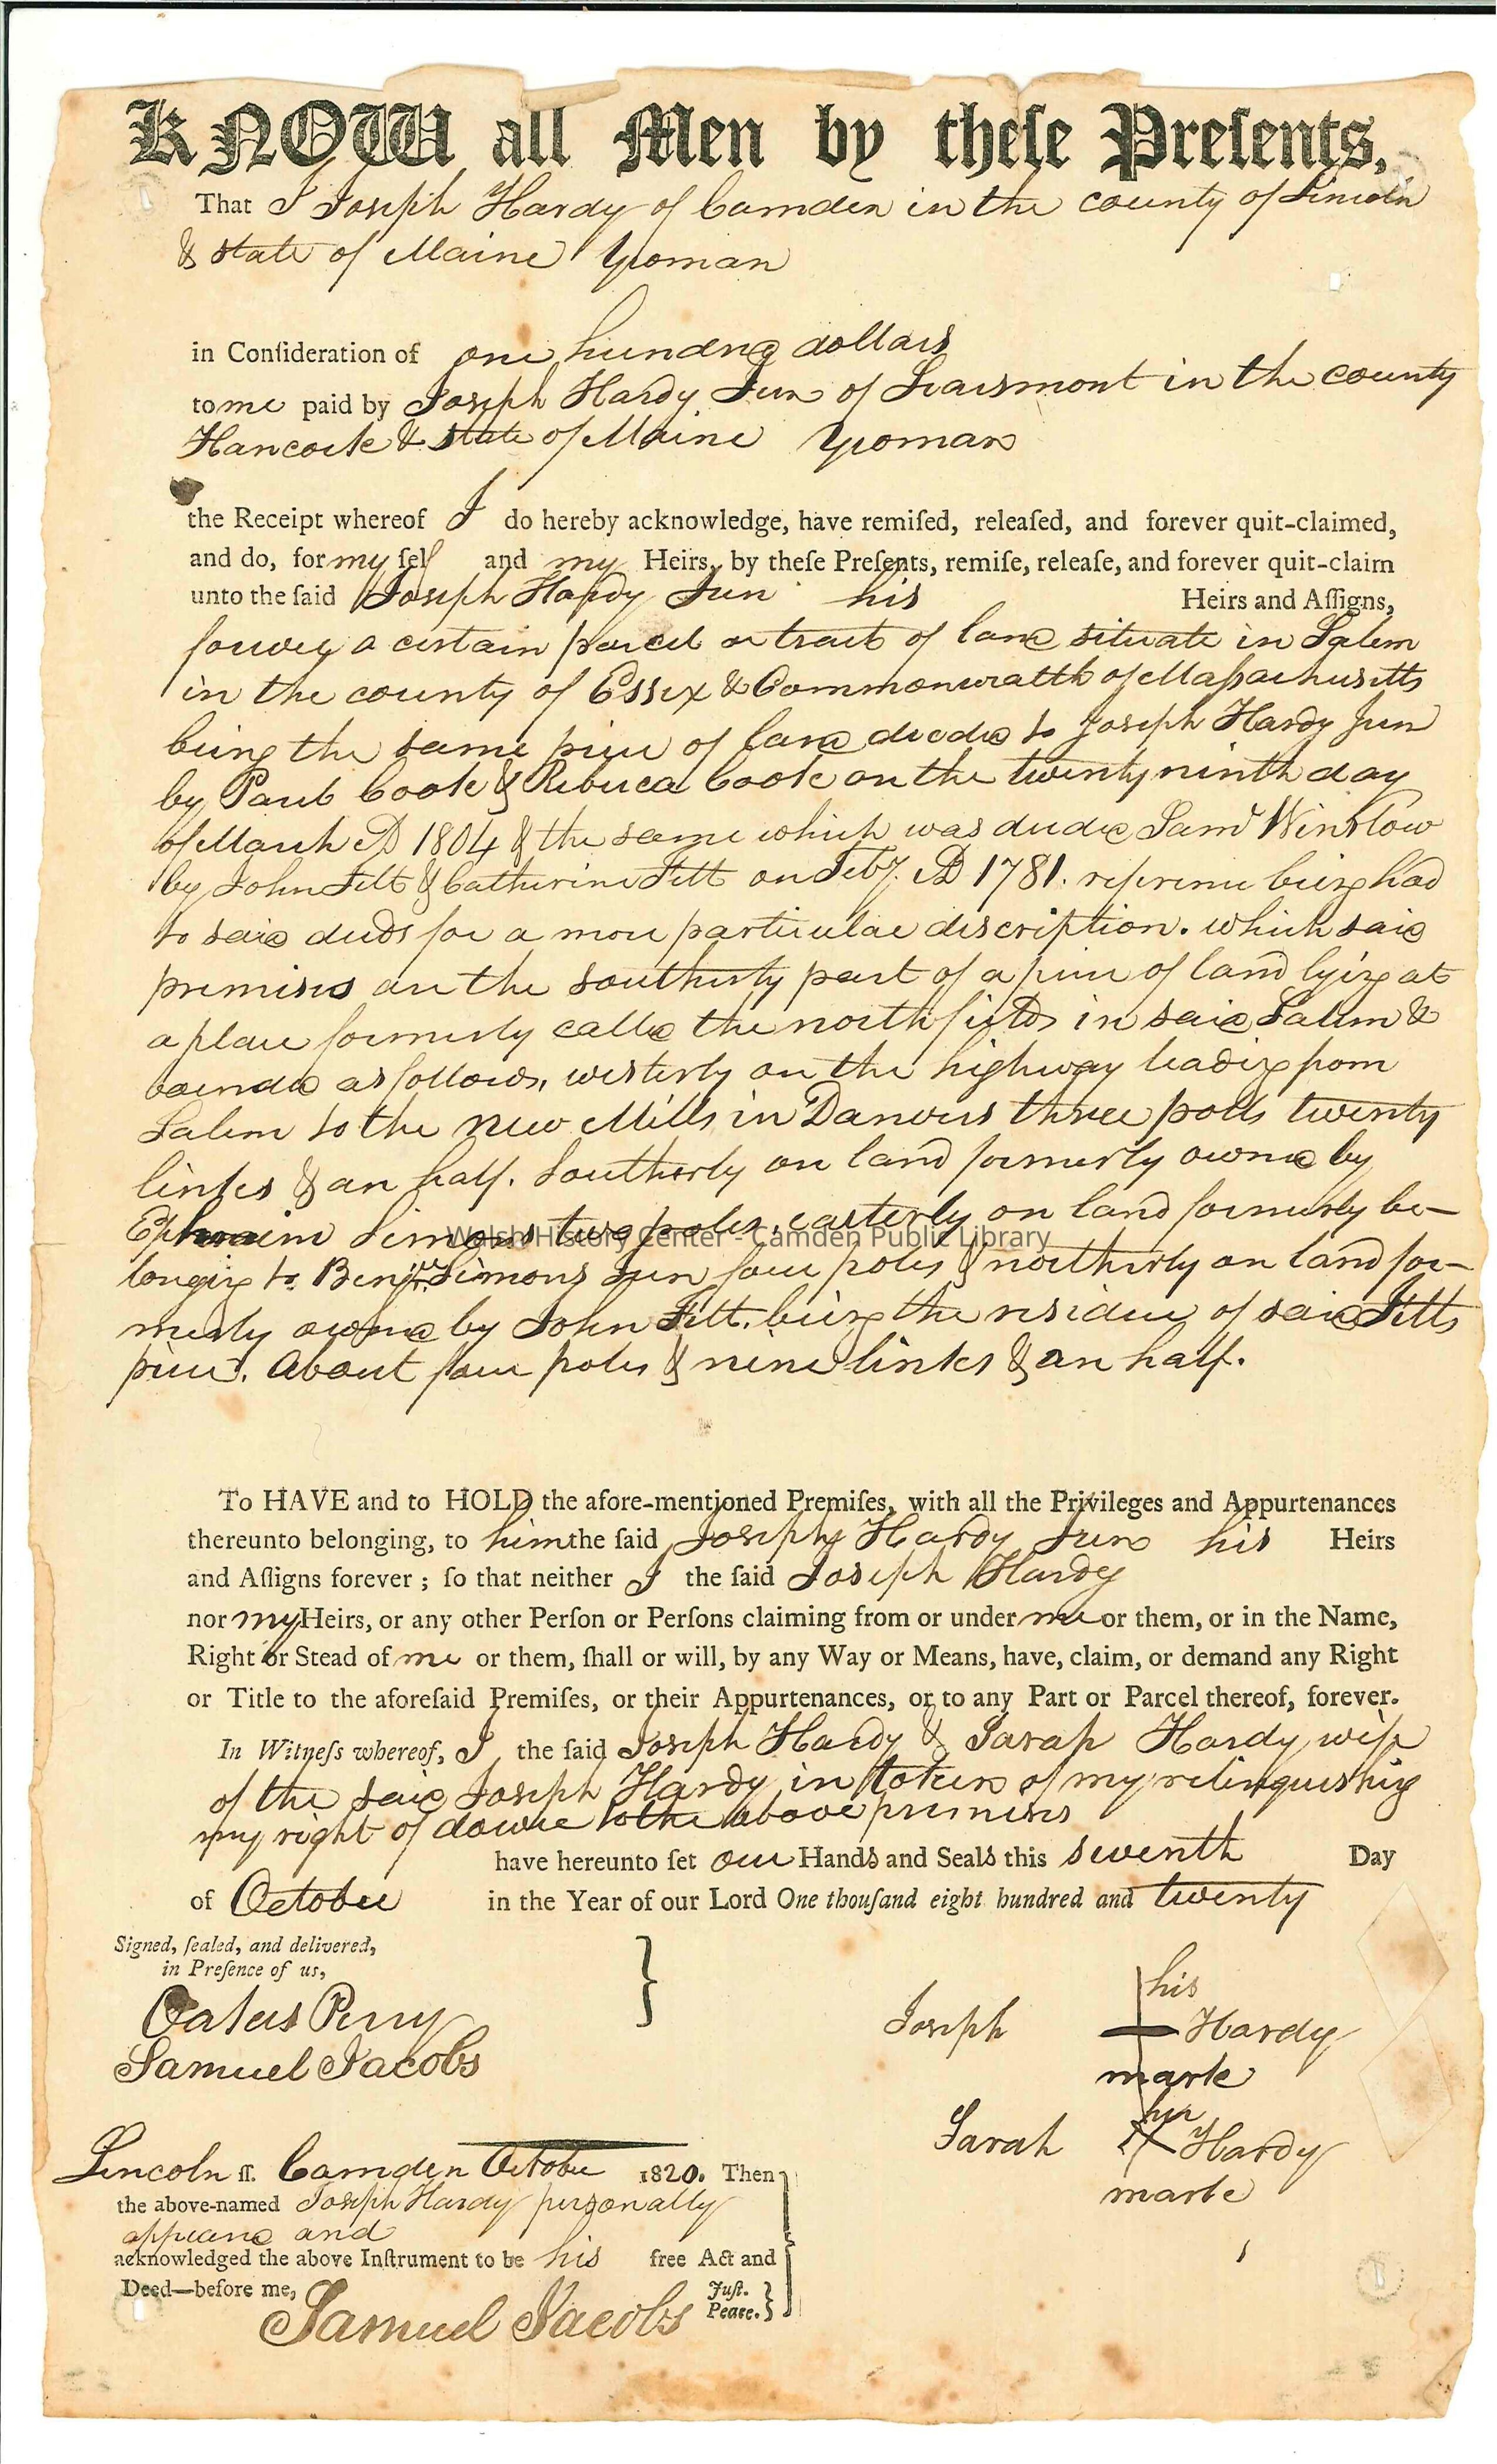 KNOW all Men by theſe Preſents,
That I Joseph Hardy of Camden in the county of Lincoln
& state of Maine Yeoman
in Conſideration of one hundred dollars
to me paid by Joseph Hardy Jun of Searsmont in the county
Hancock & state of Maine Yeoman
the Receipt whereof I do hereby acknowledge, have remiſed, releaſed, and forever quit-claimed,
and do, for my ſelf and my Heirs, by theſe Preſents, remiſe, releaſe, and forever quit-claim
unto the ſaid Joseph Hardy Jun his Heirs and Aſſigns,
forever a certain parcel or tract of land situate in Salem
in the county of Essex & Commonwealth of Massachusetts
being the same piece of land deeded to Joseph Hardy Jun
by Paul Cook & Rebecca Cook on the twenty ninth day
of March AD 1804 & the same which was deeded Saml Winslow
by John Felt & Catherine Felt on Feby. AD 1781. reference being had
to said deeds for a more particular description. which said
premises are the southerly part of a piece of land lying at
a place formerly called the north fields in said Salem &
bounded as follows, westerly on the highway leading from
Salem to the new Mills in Danvers three polls twenty
links & an half. Southerly on land formerly owned by
Ephraim Simons two poles, easterly on land formerly be-
Walsh History Center - Camden Public Library
longing to Benjn. Simons Jun four poles & northerly on land for-
merly owned by John Felt. being the residue of said Felts
piece. About four poles & nine links & an half.
To HAVE and to HOLD the afore-mentioned Premiſes, with all the Privileges and Appurtenances
thereunto belonging, to him the ſaid Joseph Hardy Jun his Heirs
and Aſſigns forever ; ſo that neither I the ſaid Joseph Hardy
nor my Heirs, or any other Perſon or Perſons claiming from or under me or them, or in the Name,
Right or Stead of me or them, ſhall or will, by any Way or Means, have, claim, or demand any Right
or Title to the aforeſaid Premiſes, or their Appurtenances, or to any Part or Parcel thereof, forever.
In Witneſs whereof, I the ſaid Joseph Hardy & Sarah Hardy wife
of the said Joseph Hardy in token of my relinquishing
my right of dower to the above premises
have hereunto ſet our Hands and Seals this seventh Day
of October in the Year of our Lord One thouſand eight hundred and twenty
Signed, ſealed, and delivered,
in Preſence of us,
Perry
Samuel Jacobs
his
Joseph Hardy
mark
her
Sarah X Hardy
mark
Lincoln ſſ. Camden October 1820. Then
the above-named Joseph Hardy personally
appeared and
acknowledged the above Inſtrument to be his free Act and
Deed—before me,
Samuel Jacobs Juſt. Peace.